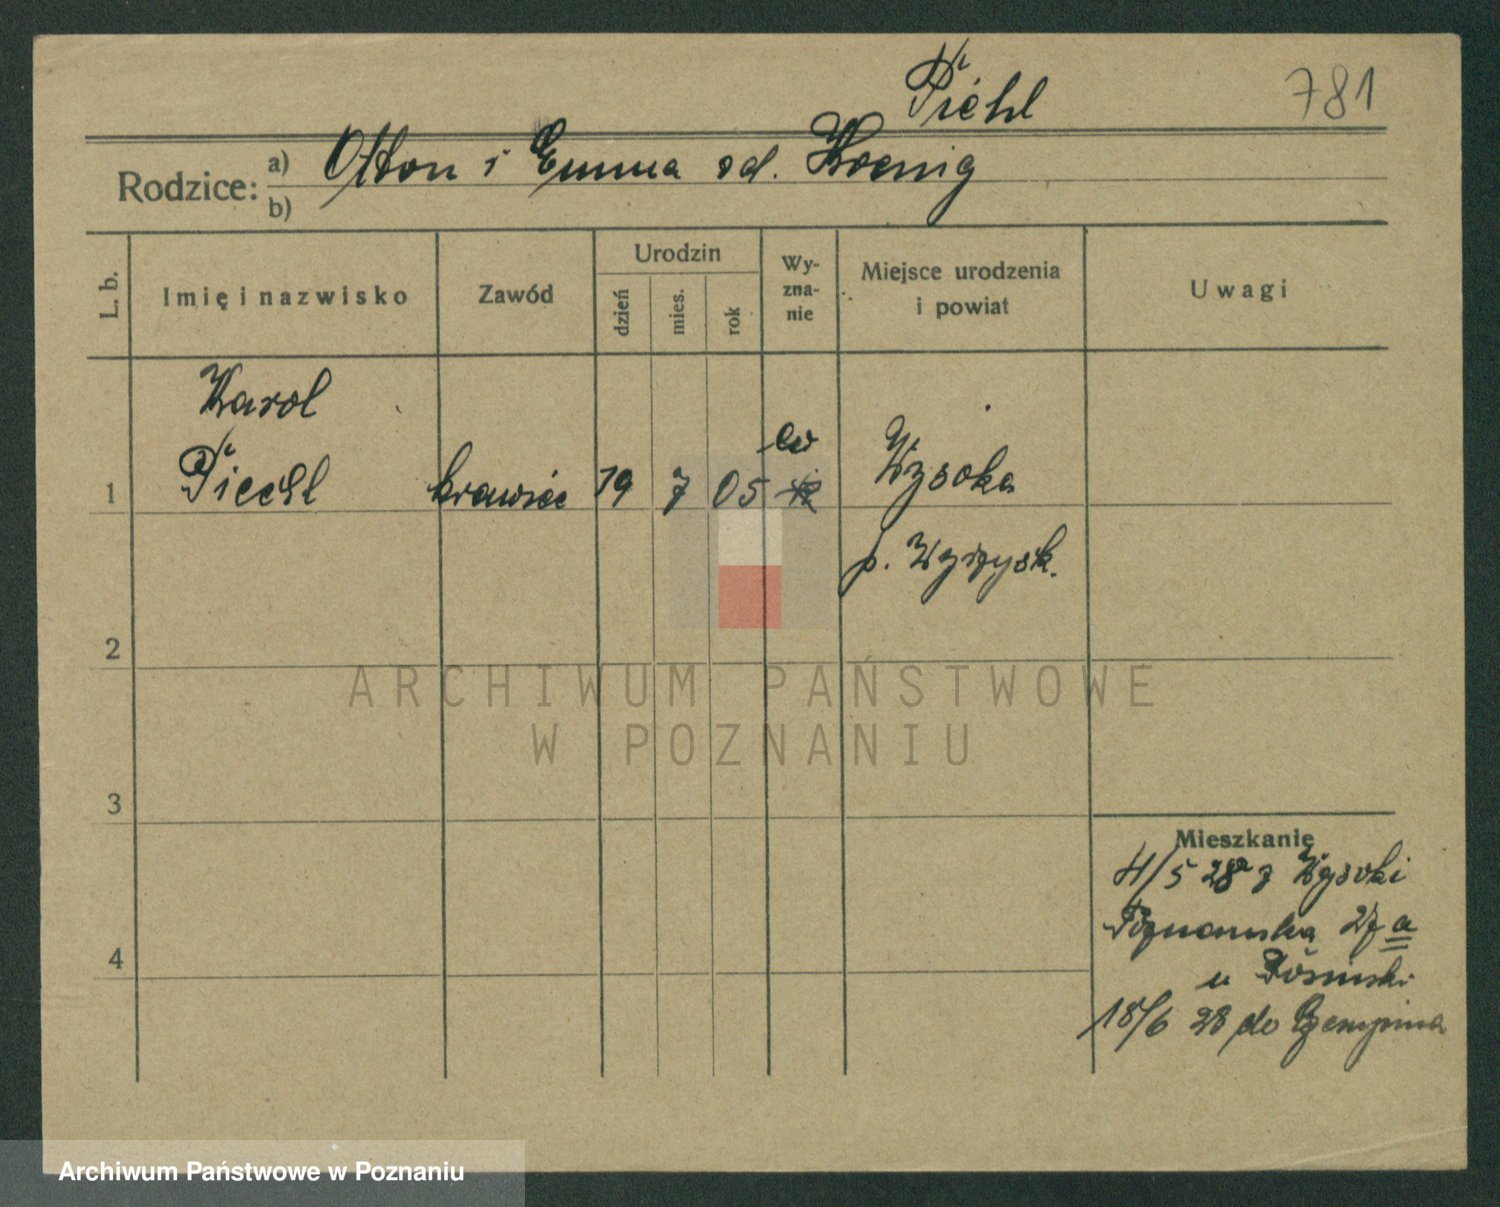 Piehl
781
Rodzice: a) Otton i Emma zd. Koenig
b)
L. b.
Imię i nazwisko
Zawód
Urodzin
dzień
mies.
rok
Wy-
zna-
nie
Miejsce urodzenia
i powiat
Uwagi
Karol
ew
1 Piechl krawiec 19 7 05 Wysoka
p. Wyrzysk.
2
ARCHIWUM PAŃSTWOWE
W POZNANIU
3
Mieszkanie
4/5 28 z Wysoki
Poznańska 27 a
4
u
18/6 28 do Czempinia
Archiwum Państwowe w Poznaniu